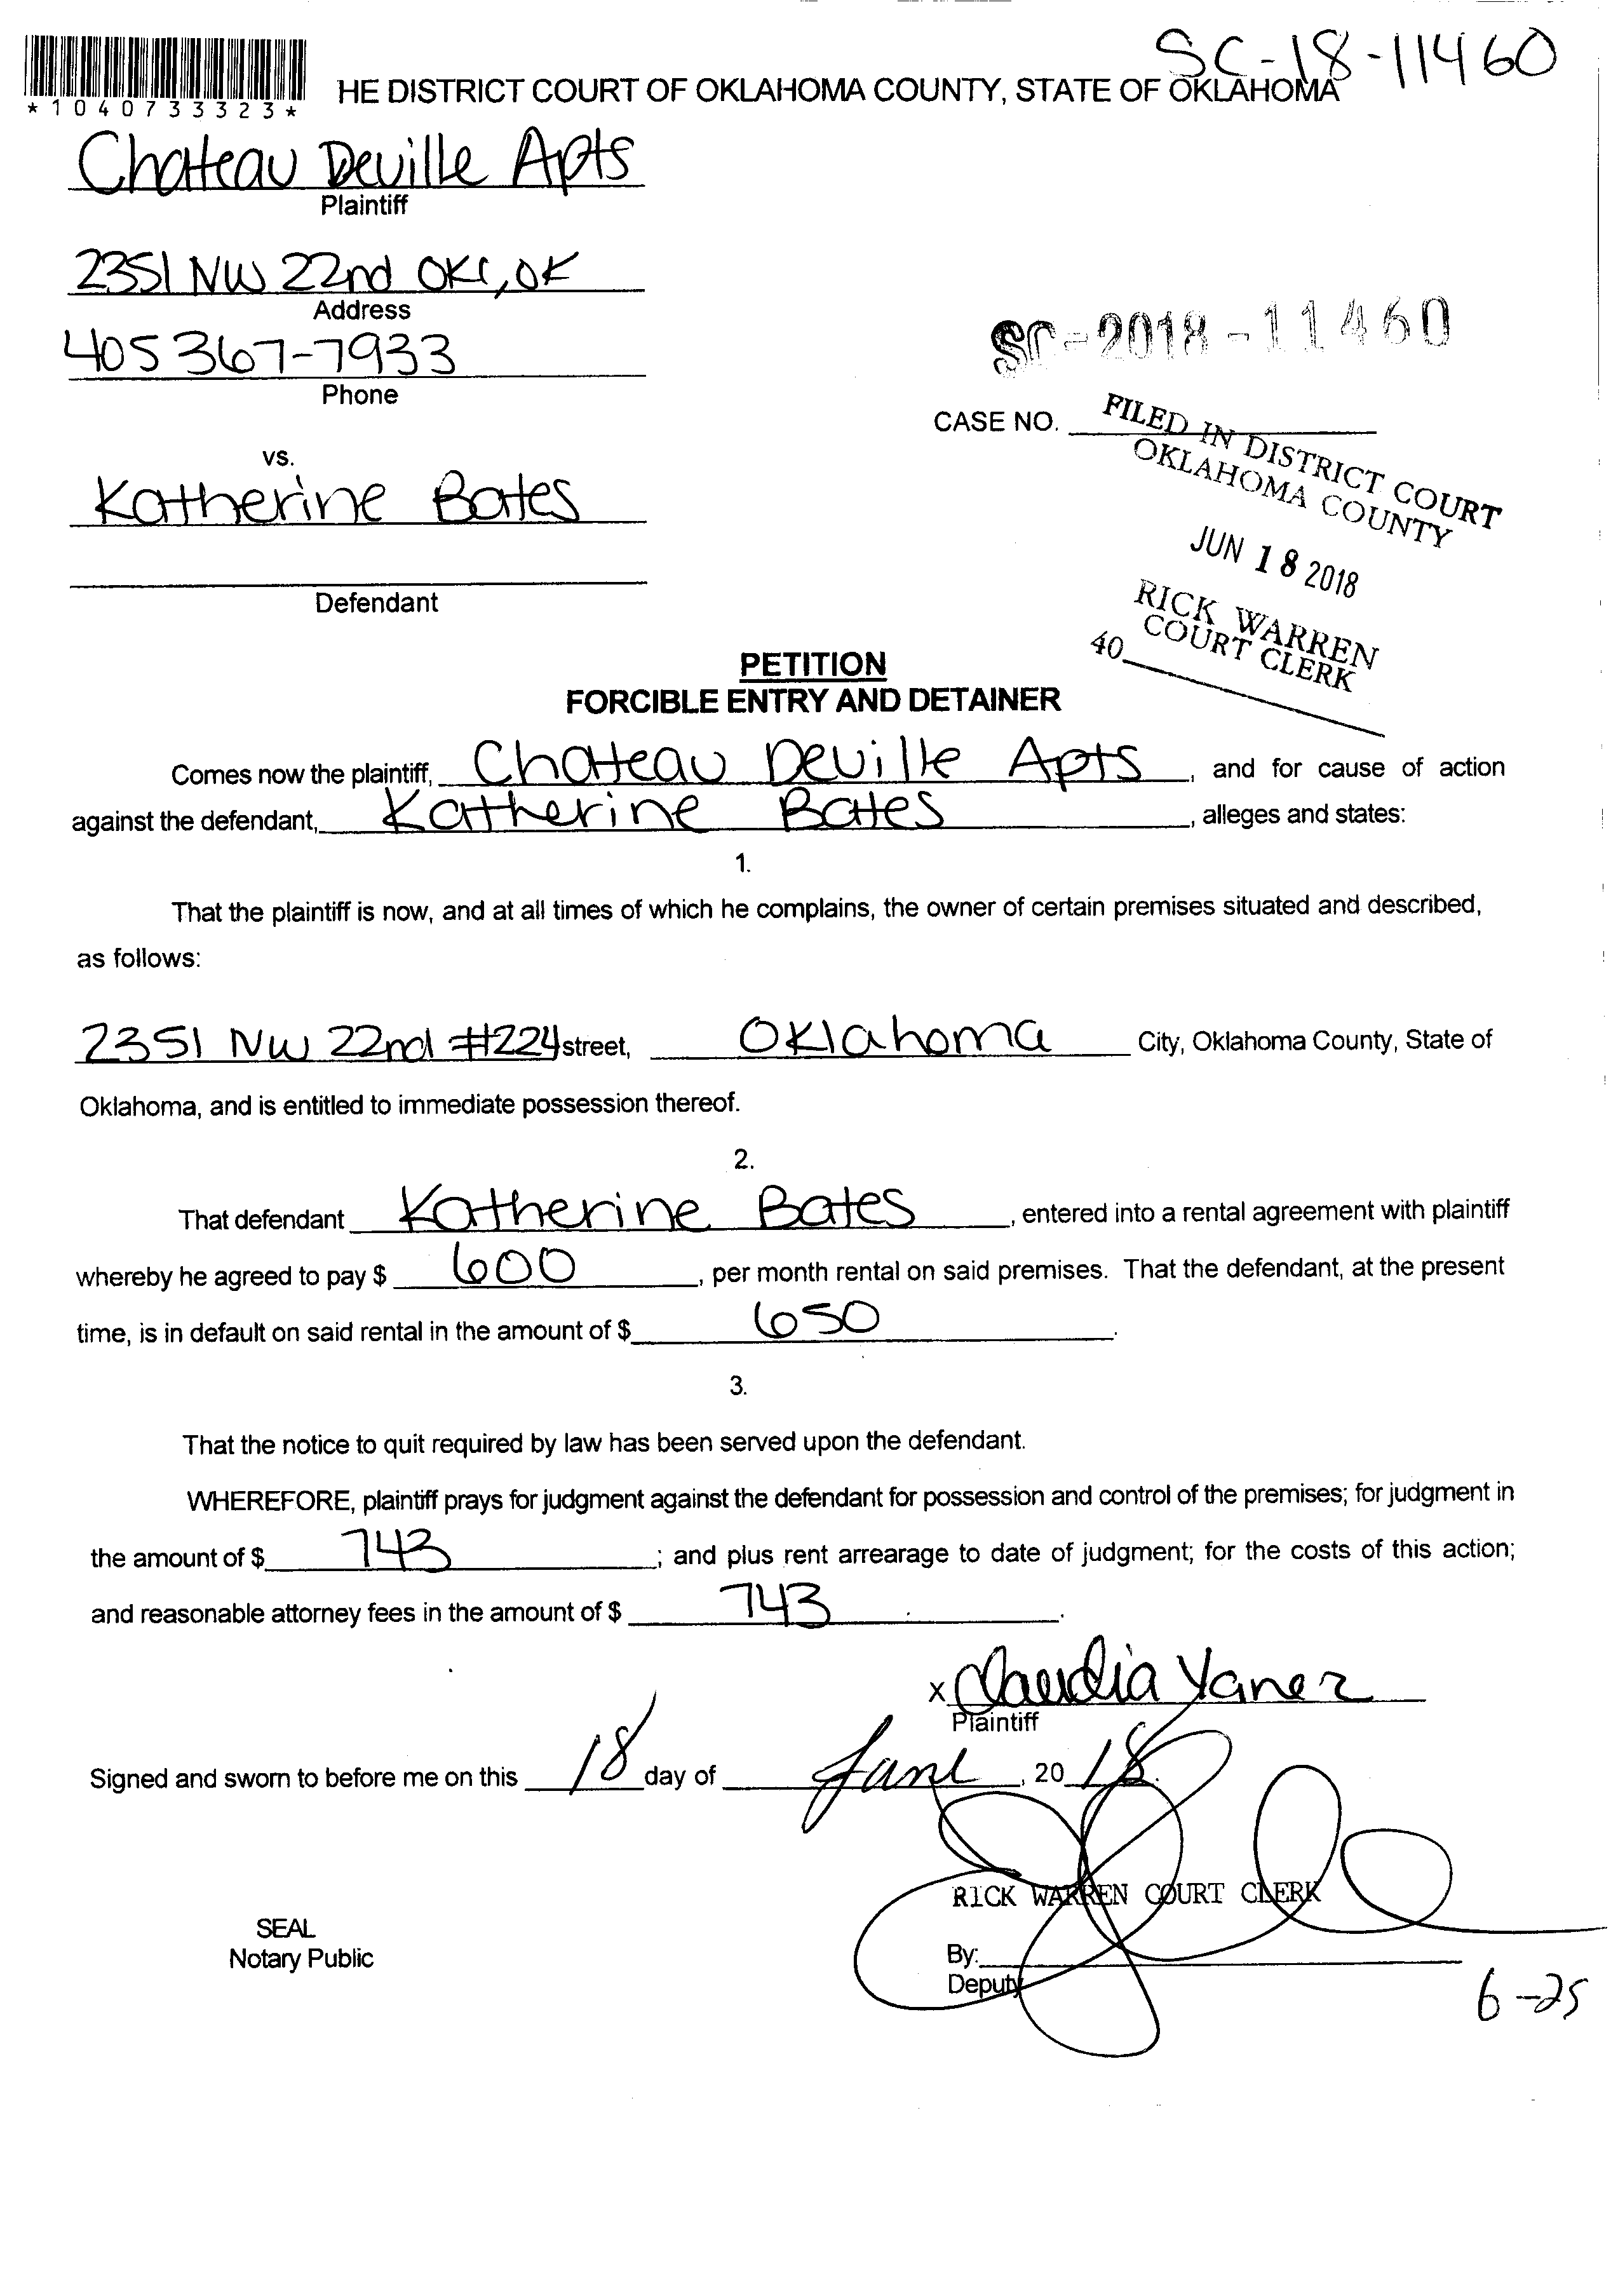 SC-18-11460
*1040733323*
HE DISTRICT COURT OF OKLAHOMA COUNTY, STATE OF OKLAHOMA
Chateau Deville Apts
Plaintiff
2351 NW 22nd OKC, OK
Address
405 367-7933
Phone
SC-2018-11460
CASE NO.
FILED IN DISTRICT COURT
OKLAHOMA COUNTY
JUN 18 2018
RICK WARREN
COURT CLERK
40
vs.
Katherine Bates
Defendant
PETITION
FORCIBLE ENTRY AND DETAINER
Comes now the plaintiff, Chateau Deville Apts, and for cause of action
against the defendant, Katherine Bates, alleges and states:
1.
That the plaintiff is now, and at all times of which he complains, the owner of certain premises situated and described,
as follows:
2351 NW 22nd #224 street, Oklahoma City, Oklahoma County, State of
Oklahoma, and is entitled to immediate possession thereof.
2.
That defendant Katherine Bates, entered into a rental agreement with plaintiff
whereby he agreed to pay $ 600, per month rental on said premises. That the defendant, at the present
time, is in default on said rental in the amount of $ 650.
3.
That the notice to quit required by law has been served upon the defendant.
WHEREFORE, plaintiff prays for judgment against the defendant for possession and control of the premises; for judgment in
the amount of $ 743; and plus rent arrearage to date of judgment; for the costs of this action;
and reasonable attorney fees in the amount of $ 743.
x Claudia Yanez
Plaintiff
Signed and sworn to before me on this 18 day of June, 2018.
RICK WARREN COURT CLERK
SEAL
Notary Public
By:
Deputy
6-25